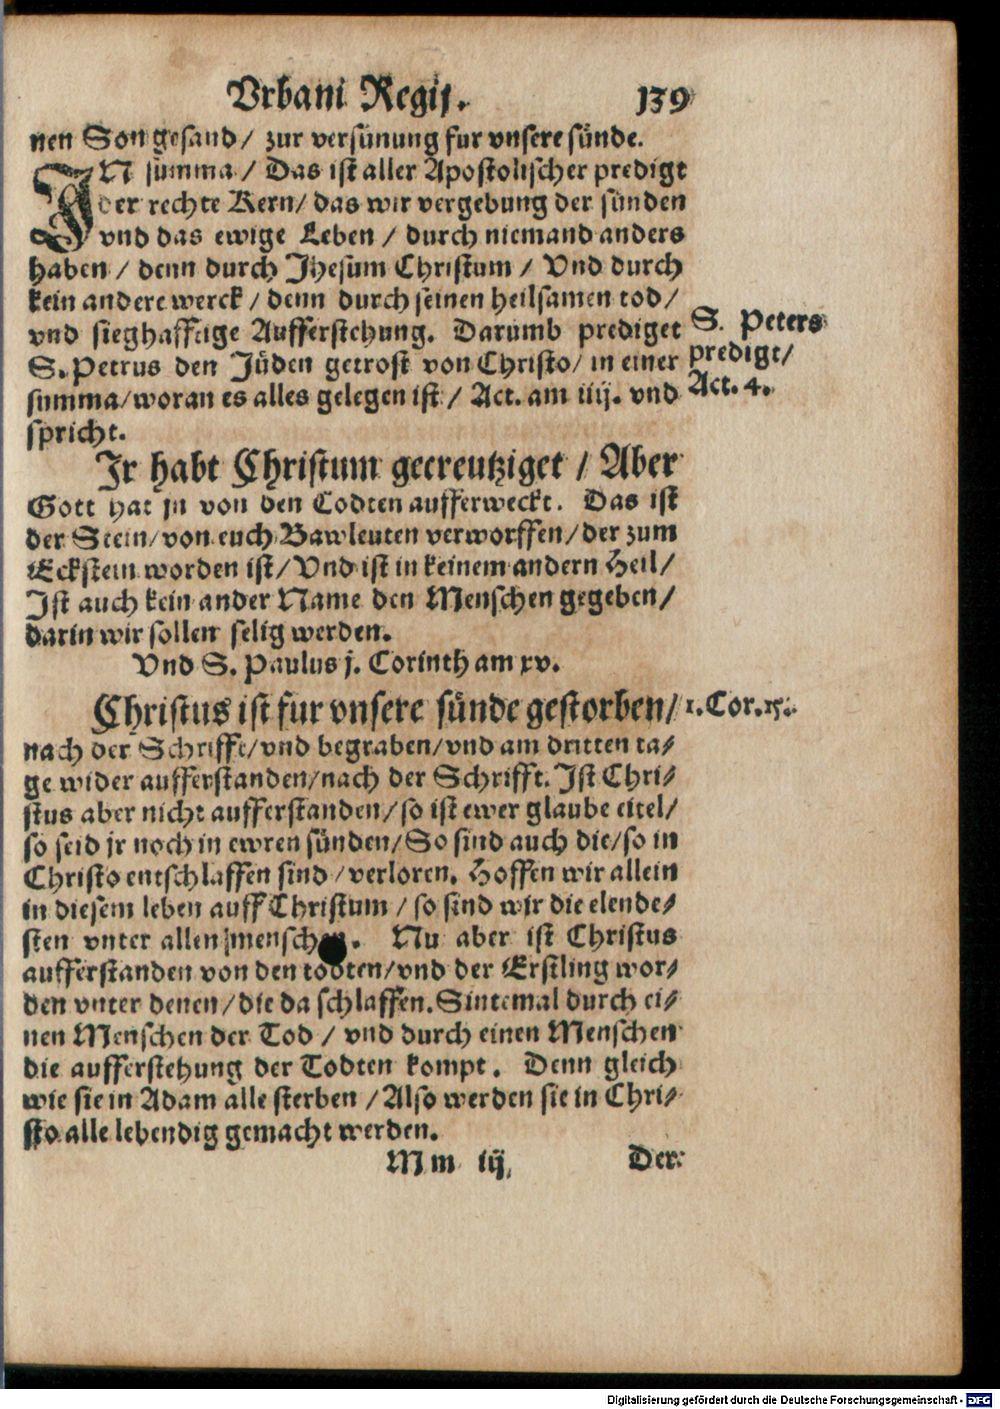 Vrbani Regij. 139
nen Son gesand/ zur versünung fur vnsere sünde.
IN summa / Das ist aller Apostolischer predigt
der rechte Kern/ das wir vergebung der sünden
vnd das ewige Leben / durch niemand anders
haben / denn durch Jhesum Christum / Vnd durch
kein andere werck / denn durch seinen heilsamen tod/
vnd sieghafftige Aufferstehung. Darumb prediget
S. Petrus den Jüden getrost von Christo/ in einer
summa/woran es alles gelegen ist / Act. am iiij. vnd
spricht.
S. Peters
predigt/
Act. 4.
Jr habt Christum gecreutziget / Aber
Gott hat jn von den Todten aufferweckt. Das ist
der Stein/von euch Bawleuten verworffen/der zum
Eckstein worden ist/Vnd ist in keinem andern Heil/
Jst auch kein ander Name den Menschen gegeben/
darin wir sollen selig werden.
Vnd S. Paulus j. Corinth am xv.
Christus ist fur vnsere sünde gestorben/
1. Cor. 15.
nach der Schrifft/vnd begraben/vnd am dritten ta⸗
ge wider aufferstanden/nach der Schrifft. Jst Chri⸗
stus aber nicht aufferstanden/so ist ewer glaube eitel/
so seid jr noch in ewren sünden/So sind auch die/so in
Christo entschlaffen sind /verloren. Hoffen wir allein
in diesem leben auff Christum / so sind wir die elende⸗
sten vnter allen menschen. Nu aber ist Christus
aufferstanden von den todten/vnd der Erstling wor⸗
den vnter denen/die da schlaffen. Sintemal durch ei⸗
nen Menschen der Tod / vnd durch einen Menschen
die aufferstehung der Todten kompt. Denn gleich
wie sie in Adam alle sterben /Also werden sie in Chri⸗
sto alle lebendig gemacht werden.
Mm iij Der
Digitalisierung gefördert durch die Deutsche Forschungsgemeinschaft - DFG